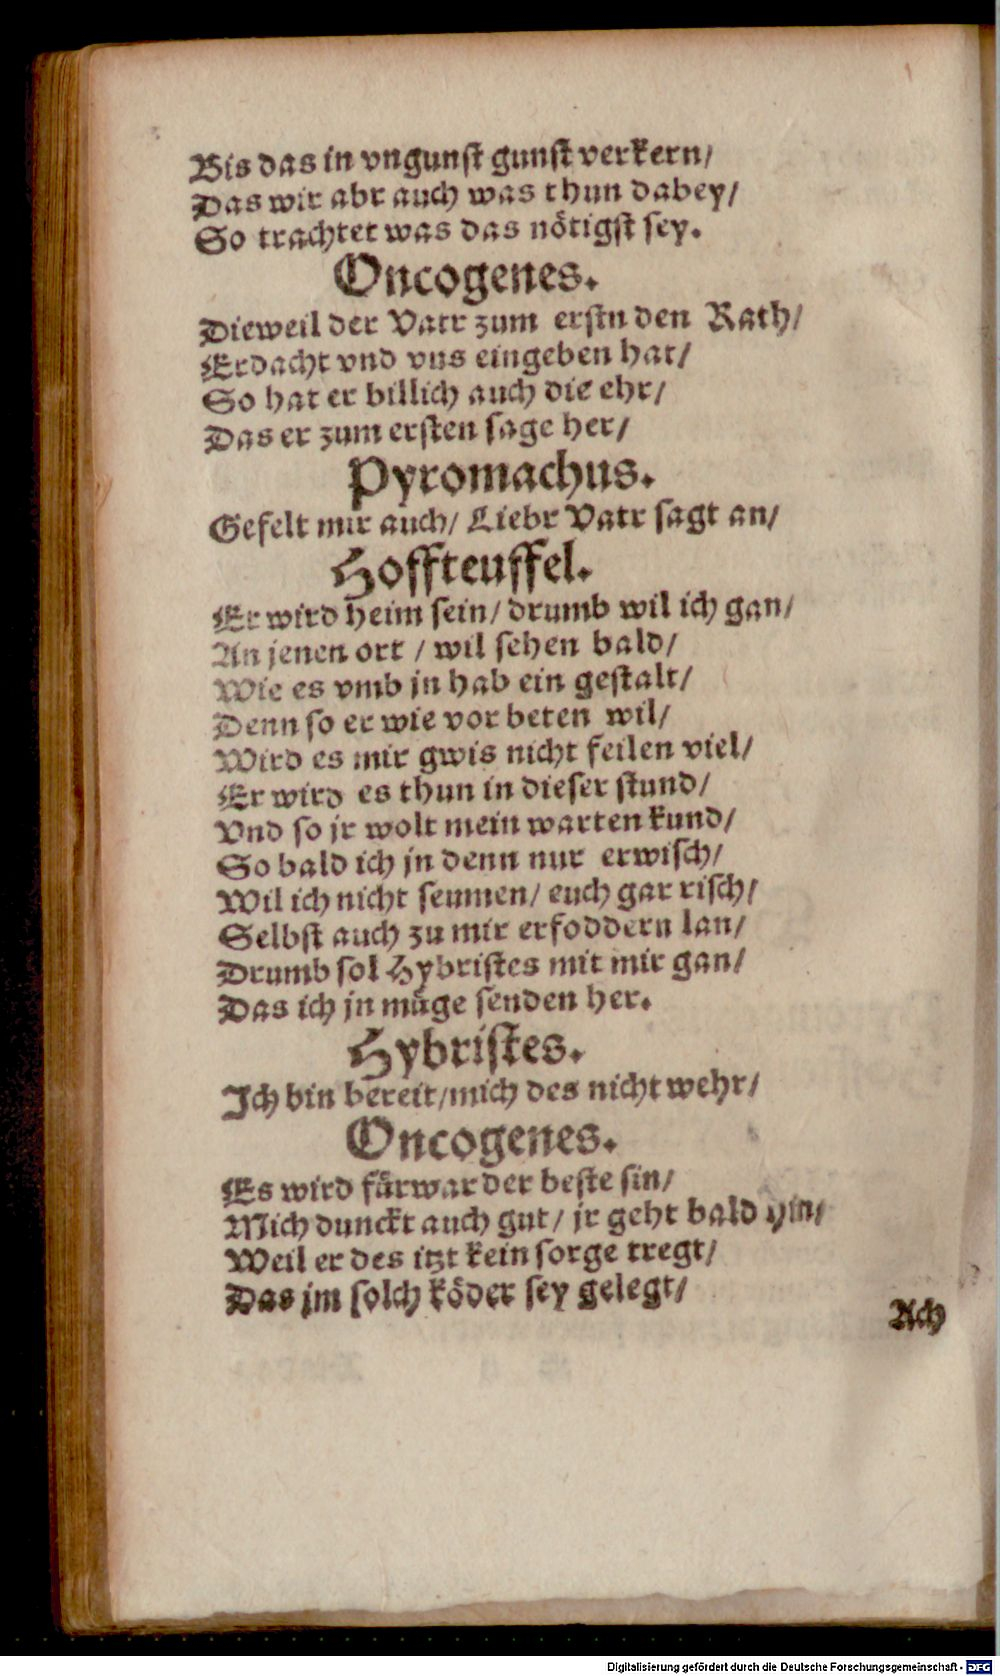 Bis das in vngunst gunst verkern/
Das wir abr auch was thun dabey/
So trachtet was das nötigst sey.
Oncogenes.
Dieweil der Vatr zum erstn den Rath/
Erdacht vnd vns eingeben hat/
So hat er billich auch die ehr/
Das er zum ersten sage her/
Pyromachus.
Gefelt mir auch/ Liebr Vatr sagt an/
Hoffteuffel.
Er wird heim sein/ drumb wil ich gan/
An jenen ort / wil sehen bald/
Wie es vmb jn hab ein gestalt/
Denn so er wie vor beten wil/
Wird es mir gwis nicht feilen viel/
Er wird es thun in dieser stund/
Vnd so jr wolt mein warten kund/
So bald ich jn denn nur erwisch/
Wil ich nicht seumen/ euch gar risch/
Selbst auch zu mir erfoddern lan/
Drumb sol Hybristes mit mir gan/
Das ich jn müge senden her.
Hybristes.
Ich bin bereit/mich des nicht wehr/
Oncogenes.
Es wird fürwar der beste sin/
Mich dunckt auch gut/ jr geht bald hin/
Weil er des itzt kein sorge tregt/
Das jm solch köder sey gelegt/
Ach
Digitalisierung gefördert durch die Deutsche Forschungsgemeinschaft - DFG